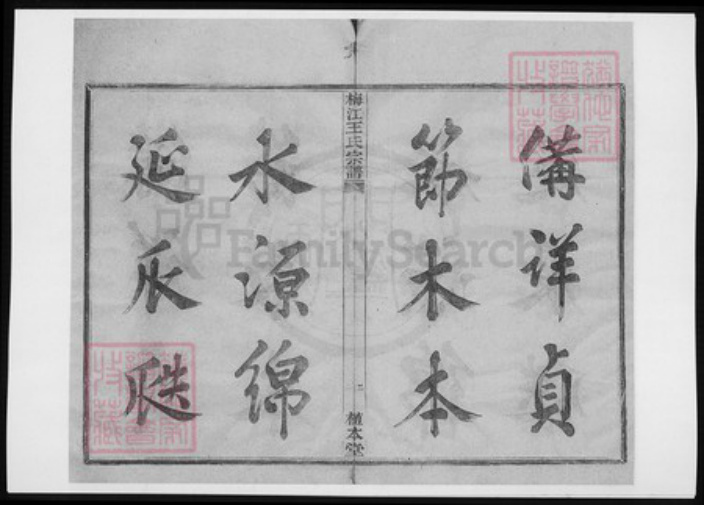 備詳貞
節木本
梅江王氏宗譜
二
植本堂
水源綿
延瓜瓞
FamilySearch